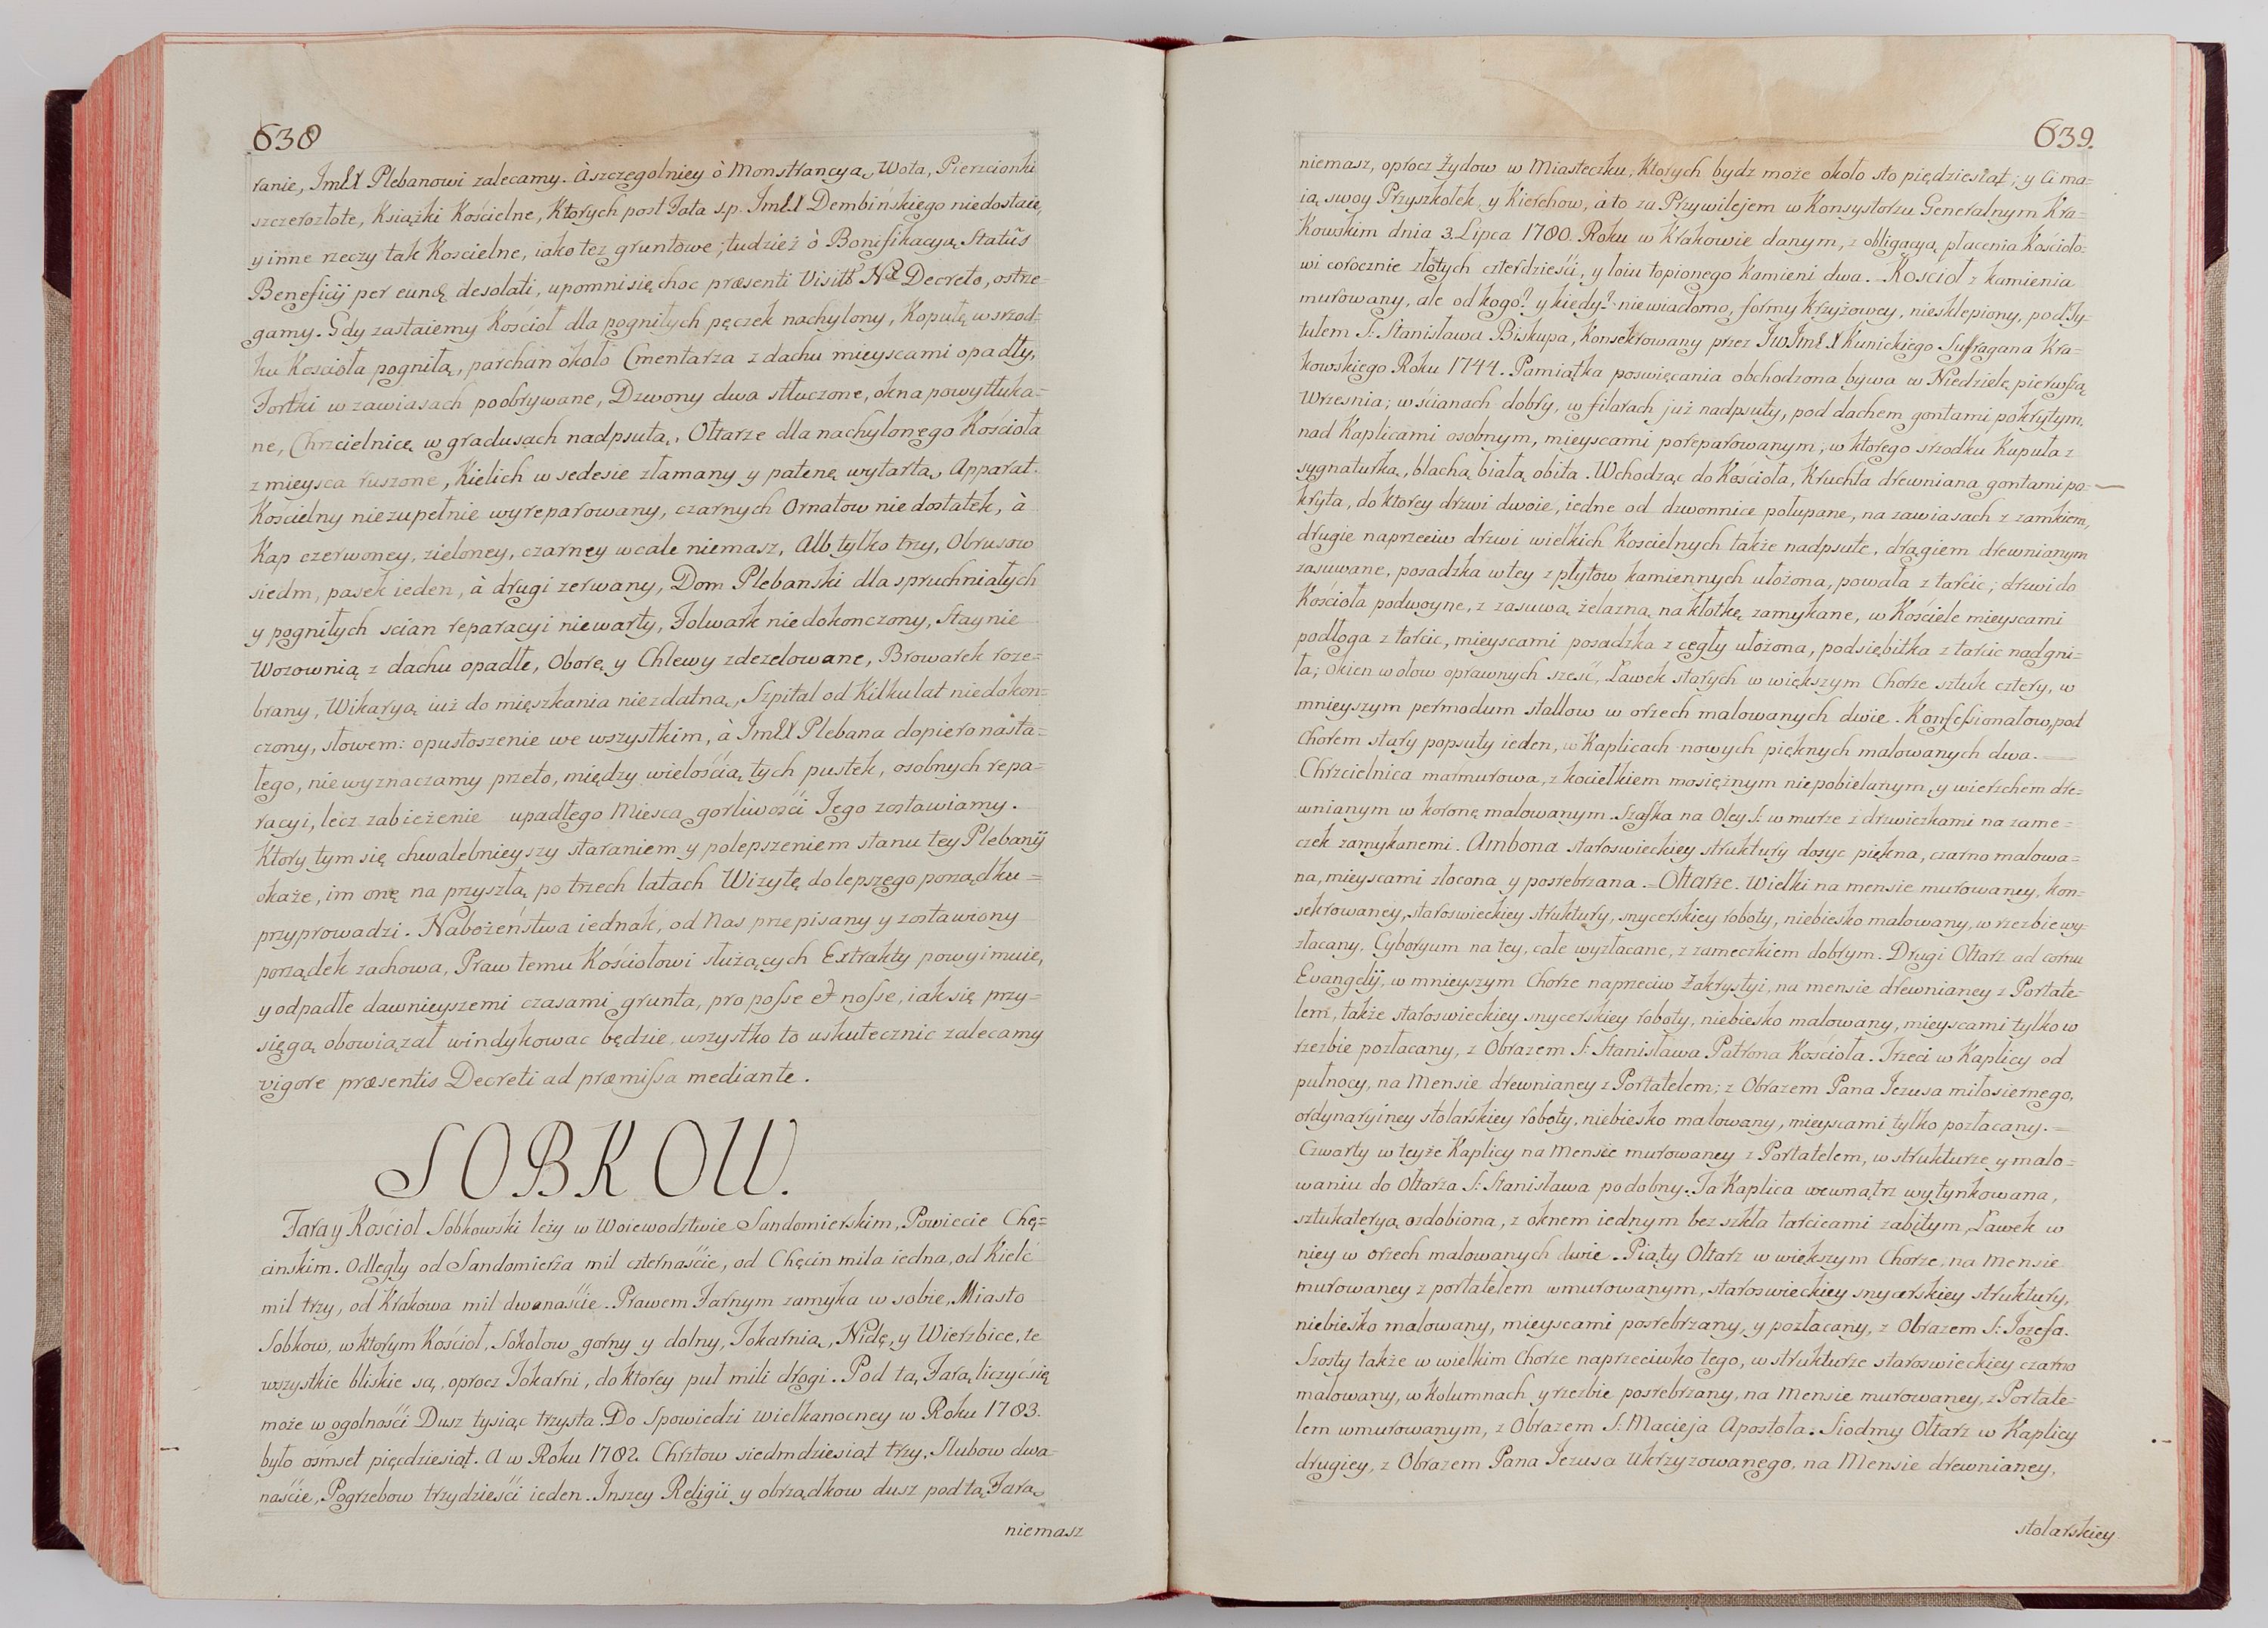 638
ranie, ImX Plebanowi zalecamy. À szczegolniey ò Monstrancyą, Wota, Pierzcionki
szczerozłote, Książki Kościelne, Ktorych post Fata s.p. ImX Dembińskiego niedostaie,
y inne rzeczy tak Koscielne, iako tez gruntowe; tudzież ò Bonifikacyą Statûs
Beneficij per eund desolati, upomni się hoc præsenti Decreto, ostrze=
gamy. Gdy zastaiemy Kościoł dla pogniłych pęczek nachylony, Kopułę w srzod=
ku Kościoła pogniłą, parchan około Cmentarza z dachu mieyscami opadły,
Fortki w zawiasach poobrywane, Dzwony dwa stłuczone, okna powytłuka=
ne, Chrzcielnicę w gradusach nadpsutą, Ołtarze dla nachylonego Kościoła
z mieysca ruszone, Kielich w sedesie złamany y patenę wytartą, Apparat
Kościelny niezupełnie wyreparowany, czarnych Ornatow niedostatek, à
Kap czerwoney, zieloney, czarney wcale niemasz, Alb tylko trzy, Obrusow
siedm, pasek ieden, à drugi zerwany, Dom Plebanski dla spruchniałych
y pogniłych scian reparacyi niewarty, Folwark niedokonczony, Staynie
Wozownią z dachu opadłe, Oborę y Chlewy zdezelowane, Browarek roze=
brany, Wikaryą iuż do mięszkania niezdatną, Szpital od Kilku lat niedokon=
czony, słowem: opustoszenie we wszystkim, à ImX Plebana dopiero nasta=
łego, niewyznaczamy przeto, między wielością tych pustek, osobnych repa=
racyi, lecz zabieżenie upadłego Miesca gorliwości Jego zostawiamy.
Ktory tym się chwalebnieyszy staraniem y polepszeniem stanu tey Plebanij
okaże, im onę na przyszłą po trzech latach Wizytę do lepszego porządku=
przyprowadzi. Nabożeństwa iednak, od Nas przepisany y zostawiony
porządek zachowa, Praw temu Kościołowi służących Extrakty powyimuie,
y odpadłe dawnieyszemi czasami grunta, pro posse et nosse, iak się przy=
sięgą obowiązał windykowac będzie, wszystko to uskutecznic zalecamy
vigore præsentis Decreti ad præmissa mediante.
SOBKOW.
Fara y Kościoł Sobkowski leży w Woiewodztwie Sandomierskim, Powiecie Chę=
cinskim. Odległy od Sandomierza mil czternaście, od Chęcin mila iedna, od Kielc
mil trzy, od Krakowa mil dwanaście. Prawem Farnym zamyka w sobie, Miasto
Sobkow, w ktorym Kościoł, Sokołow gorny y dolny, Tokarnią, Nidę, y Wierzbice, te
wszystkie bliskie są, oprocz Tokarni, do ktorey puł mili drogi. Pod tą Farą liczyć się
może w ogolności Dusz tysiąc trzysta. Do Spowiedzi wielkanocney w Roku 1783.
było ośmset pięcdziesiąt. A w Roku 1782. Chrztow siedmdziesiąt trzy, Slubow dwa=
naście, Pogrzebow trzydzieści ieden. Inszey Religii y obrządkow dusz pod tą Farą
niemasz
639.
niemasz, oprocz Żydow w Miasteczku, Ktorych bydz może około sto pięдziesiąt; y ci ma=
ią swoy Przyszkołek y Kierchow, à to za Przywilejem w Konsystorzu Generalnym Kra=
Kowskim dnia 3. Lipca 1780. Roku w Krakowie danym, z obligacyą płacenia Kościoło=
wi corocznie złotych czterdzieści, y łoiu topionego Kamieni dwa. Kościoł z kamienia
murowany, ale od kogo? y kiedy? niewiadomo, formy krzyżowey, niesklepiony, pod Ty=
tułem S: Stanisława Biskupa, Konsekrowany przez JWImX Kunickiego Suffragana Kra=
kowskiego Roku 1744. Pamiątka poswięcania obchodzona bywa w Niedzielę pierwszą
Wrzesnia; w ścianach dobry, w filarach już nadpsuty, pod dachem gontami pokrytym,
nad Kaplicami osobnym, mieyscami poreparowanym, w ktorego srzodku Kupuła z
sygnaturką, blachą białą obita. Wchodząc do Kościoła, Kruchta drewniana gontami po=
kryta, do ktorey drzwi dwoie, iedne od dzwonnice połupane, na zawiasach z zamkiem,
drugie naprzeciw drzwi wielkich Koscielnych także nadpsute, drągiem drewnianym
zasuwane, posadzka w tey z płytow kamiennych ułożona, powała z tarcic; drzwi do
Kościoła podwoyne, z zasuwą żelazną na kłotkę zamykane, w Kościele mieyscami
podłoga z tarcic, mieyscami posadzka z cegły ułożona, podsiębitka z tarcic nadgni=
ła; Okien w ołow oprawnych sześć, Ławek starych w większym Chorze sztuk cztery, w
mnieyszym per modum stallow w orzech malowanych dwie. Konfessionałow, pod
Chorem stary popsuty ieden, w Kaplicach nowych pięknych malowanych dwa.
Chrzcielnica marmurowa, z kociełkiem mosiężnym niepobielanym, y wierzchem dre=
wnianym w koronę malowanym. Szafka na Oley S: w murze z drzwiczkami na zame=
czek zamykanemi. Ambona staroswieckiey struktury dosyc piękna, czarno malowa=
na, mieyscami złocona y posrebrzana. Ołtarze. Wielki na mensie murowaney, kon=
sekrowaney, staroswieckiey struktury, snycerskiey roboty, niebiesko malowany, w rzezbie wy=
złacany. Cyboryum na tey, całe wyzłacane, z zameczkiem dobrym. Drugi Ołtarz ad cornu
Evangelij, w mnieyszym Chorze naprzeciw Zakrystyi, na mensie drewnianey z Portate=
lem, także staroswieckiey snycerskiey roboty, niebiesko malowany, mieyscami tylko w
rzezbie pozłacany, z Obrazem S: Stanisława Patrona Kościoła. Trzeci w Kaplicy od
pułnocy, na Mensie drewnianey z Portatelem; z Obrazem Pana Jezusa miłosiernego,
ordynaryiney stolarskiey roboty, niebiesko malowany, mieyscami tylko pozłacany.=
Czwarty w teyże Kaplicy na Mensie murowaney z Portatelem, w strukturze y malo=
waniu do Ołtarza S: Stanisława podobny. Ta Kaplica wewnątrz wytynkowana,
sztukateryą ozdobiona, z oknem iednym bez szkła tarcicami zabitym, Ławek w
niey w orzech malowanych dwie. Piąty Ołtarz w większym Chorze, na Mensie
murowaney z portatelem wmurowanym, staroswieckiey snycerskiey struktury,
niebiesko malowany, mieyscami posrebrzany, y pozłacany, z Obrazem S: Jozefa.
Szosty także w wielkim Chorze naprzeciwko tego, w strukturze staroswieckiey czarno
malowany, w kolumnach y rzezbie posrebrzany, na Mensie murowaney, z Portate=
lem wmurowanym, z Obrazem S: Macieja Apostoła. Siodmy Ołtarz w Kaplicy
drugiey, z Obrazem Pana Jezusa Ukrzyzowanego, na Mensie drewnianey,
stolarskiey